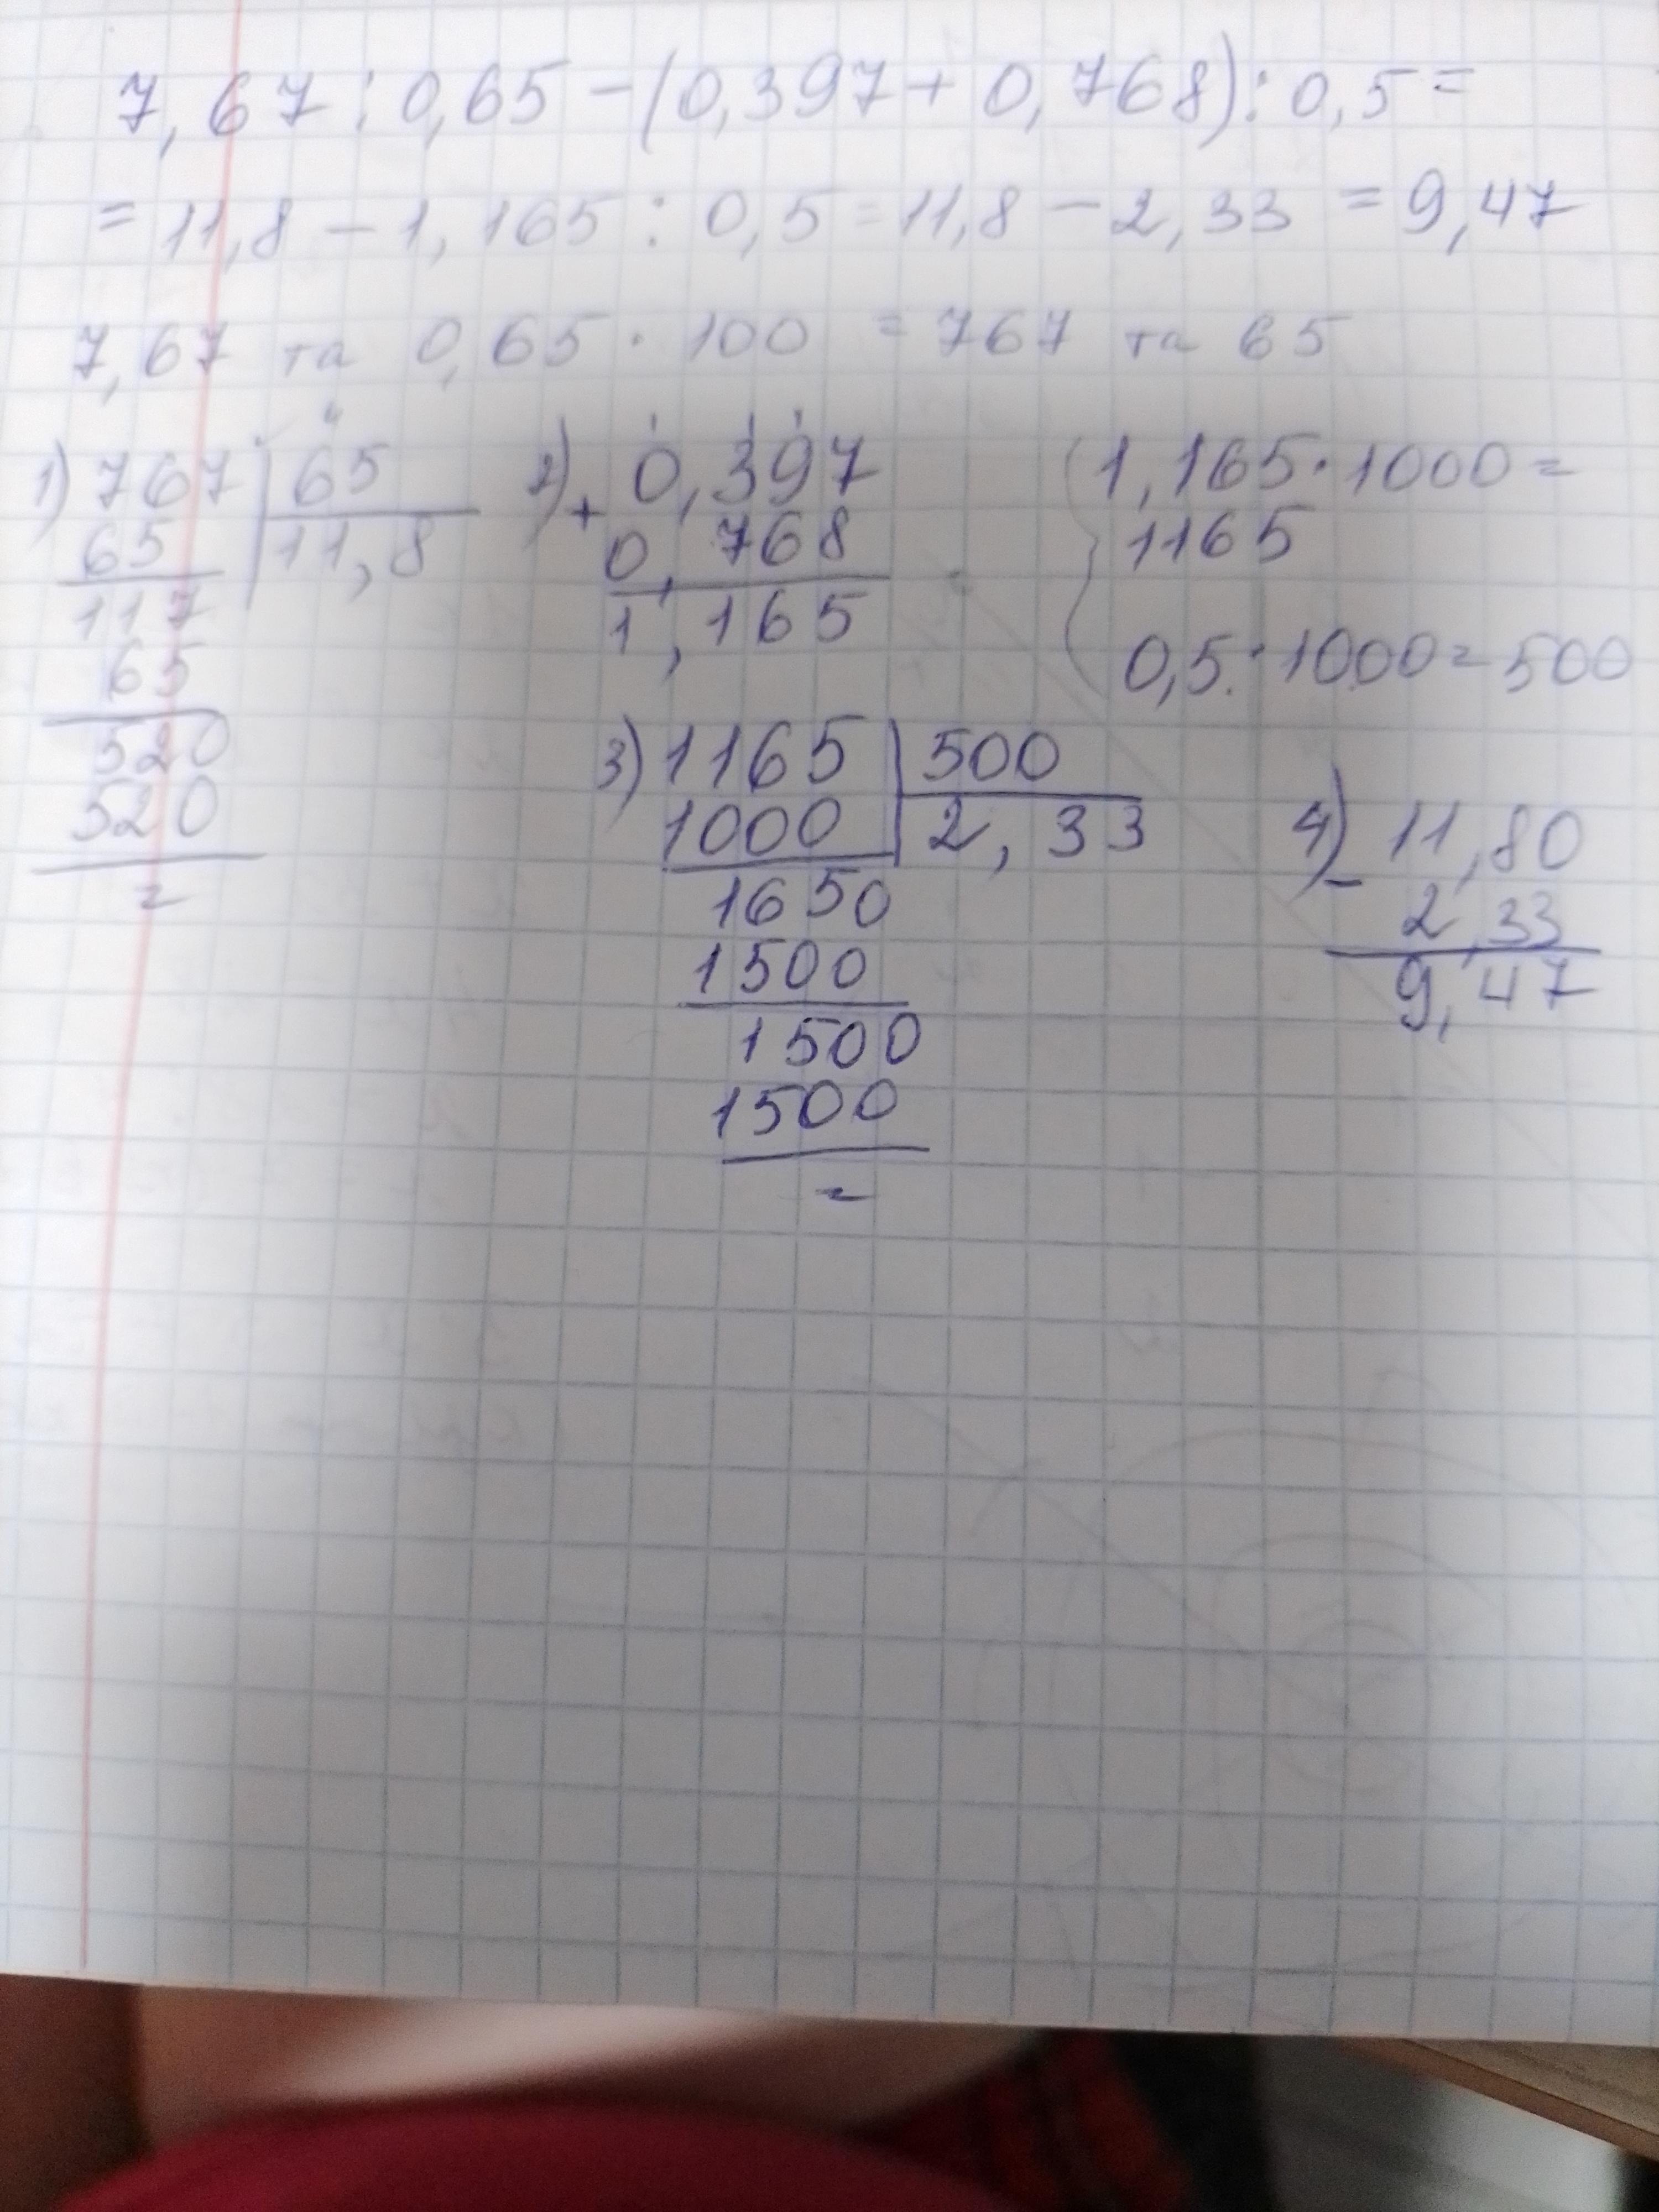 7,67 : 0,65 - (0,397 + 0,768) : 0,5 =
= 11,8 - 1,165 : 0,5 = 11,8 - 2,33 = 9,47
7,67 та 0,65 · 100 = 767 та 65
1) 767 65
65 11,8
117
65
520
520
=
2) + 0,397
0,768
1,165
1,165 · 1000 =
1165
0,5 · 1000 = 500
3) 1165 500
1000 2,33
1650
1500
1500
1500
=
4) - 11,80
2,33
9,47